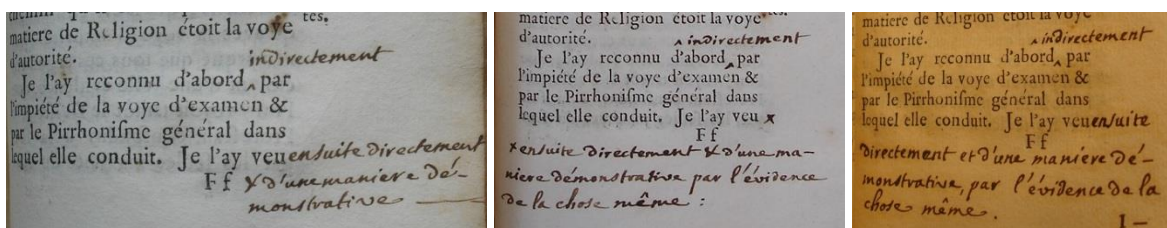 tés.
matiere de Religion étoit la voye
d'autorité.
indirectement
Je l'ay reconnu d'abord‸ par
l'impiété de la voye d'examen &
par le Pirrhonisme général dans
lequel elle conduit. Je l'ay veu ensuite directement
F f & d'une maniere dé-
monstrative
matiere de Religion étoit la voye
d'autorité. ‸ indirectement
Je l'ay reconnu d'abord‸ par
l'impiété de la voye d'examen &
par le Pirrhonisme général dans
lequel elle conduit. Je l'ay veu x
F f
x ensuite directement & d'une ma-
niere démonstrative par l'évidence
de la chose même :
matiere de Religion étoit la voye
d'autorité. ‸ indirectement
Je l'ay reconnu d'abord‸ par
l'impiété de la voye d'examen &
par le Pirrhonisme général dans
lequel elle conduit. Je l'ay veu ensuite
F f
directement et d'une maniere dé-
monstrative, par l'évidence de la
chose même.